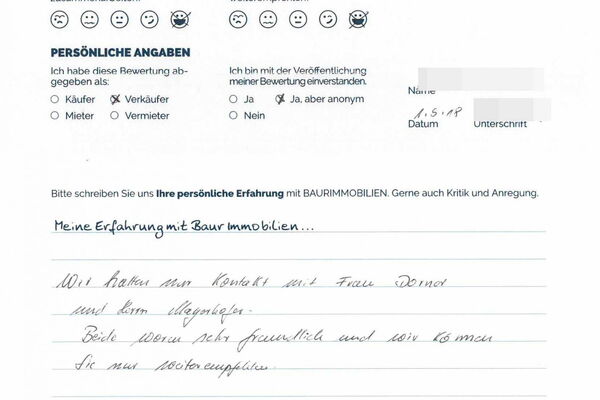 PERSÖNLICHE ANGABEN
Ich habe diese Bewertung ab-
gegeben als:
Käufer Verkäufer
Mieter Vermieter
Ich bin mit der Veröffentlichung
meiner Bewertung einverstanden.
Ja Ja, aber anonym
Nein
Name
1.5.18
Datum Unterschrift
Bitte schreiben Sie uns Ihre persönliche Erfahrung mit BAURIMMOBILIEN. Gerne auch Kritik und Anregung.
Meine Erfahrung mit Baur Immobilien...
Wir hatten nur Kontakt mit Frau
und Herrn
Beide waren sehr freundlich und wir können
Sie nur weiterempfehlen.